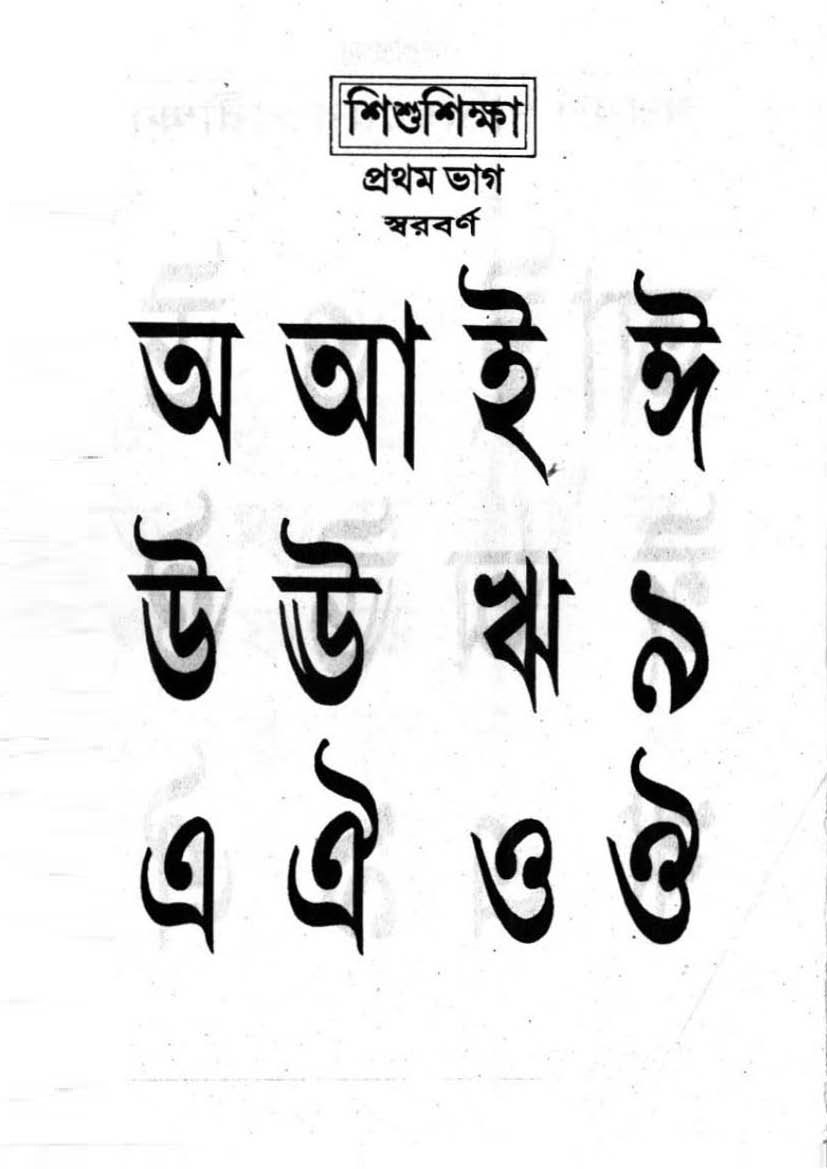 শিশুশিক্ষা
প্রথম ভাগ
স্বরবর্ণ
অ আ ই ঈ
উ ঊ ঋ ঌ
এ ঐ ও ঔ